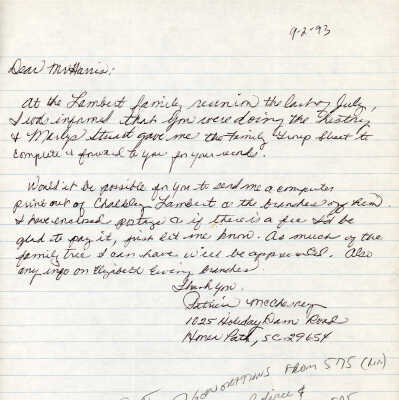 9-2-93
Dear Mr Harris:
At the Lambert family reunion the last of July,
I was informed that you were doing the history
& Merlys Stuart gave me the Family Group Sheet to
complete & forward to you for your records.
Would it be possible for you to send me a computer
print out of Lambert & the branches of them.
I have enclosed postage & if there is a fee I'd be
glad to pay it, just let me know. As much of the
family tree I can have, will be appreciated. Also
any info on Elizabeth branches
Thank you,
Patricia
1025 Holiday Dam Road
Honea Path, SC 29654
FROM 575